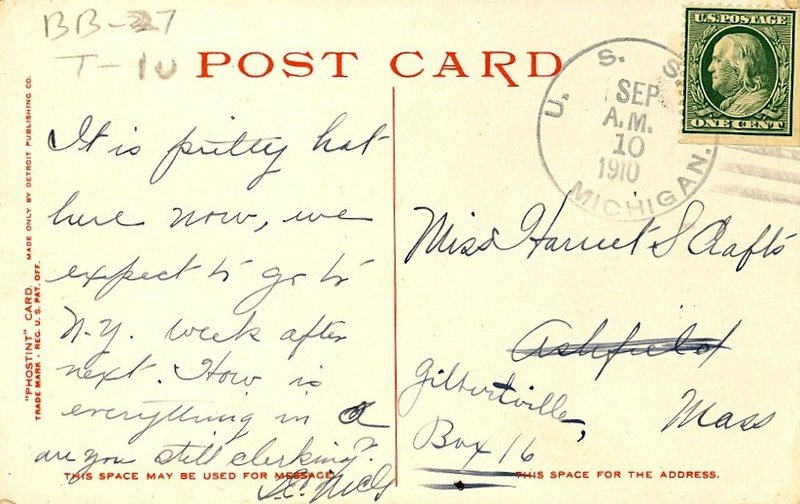 BB-27
T-10
POST CARD
U. S. S.
SEP
A.M.
10
1910
MICHIGAN.
U.S. POSTAGE
ONE CENT
"PHOSTINT" CARD. MADE ONLY BY DETROIT PUBLISHING CO.
TRADE MARK - REG. U. S. PAT. OFF.
It is pretty hot
here now, we
expect to go to
N.Y. week after
next. How is
everything in A
are you still clerking?
Miss Harriet S Crafts
Ashfield
Gilbertville,
Mass
Box 16
THIS SPACE MAY BE USED FOR MESSAGE.
THIS SPACE FOR THE ADDRESS.